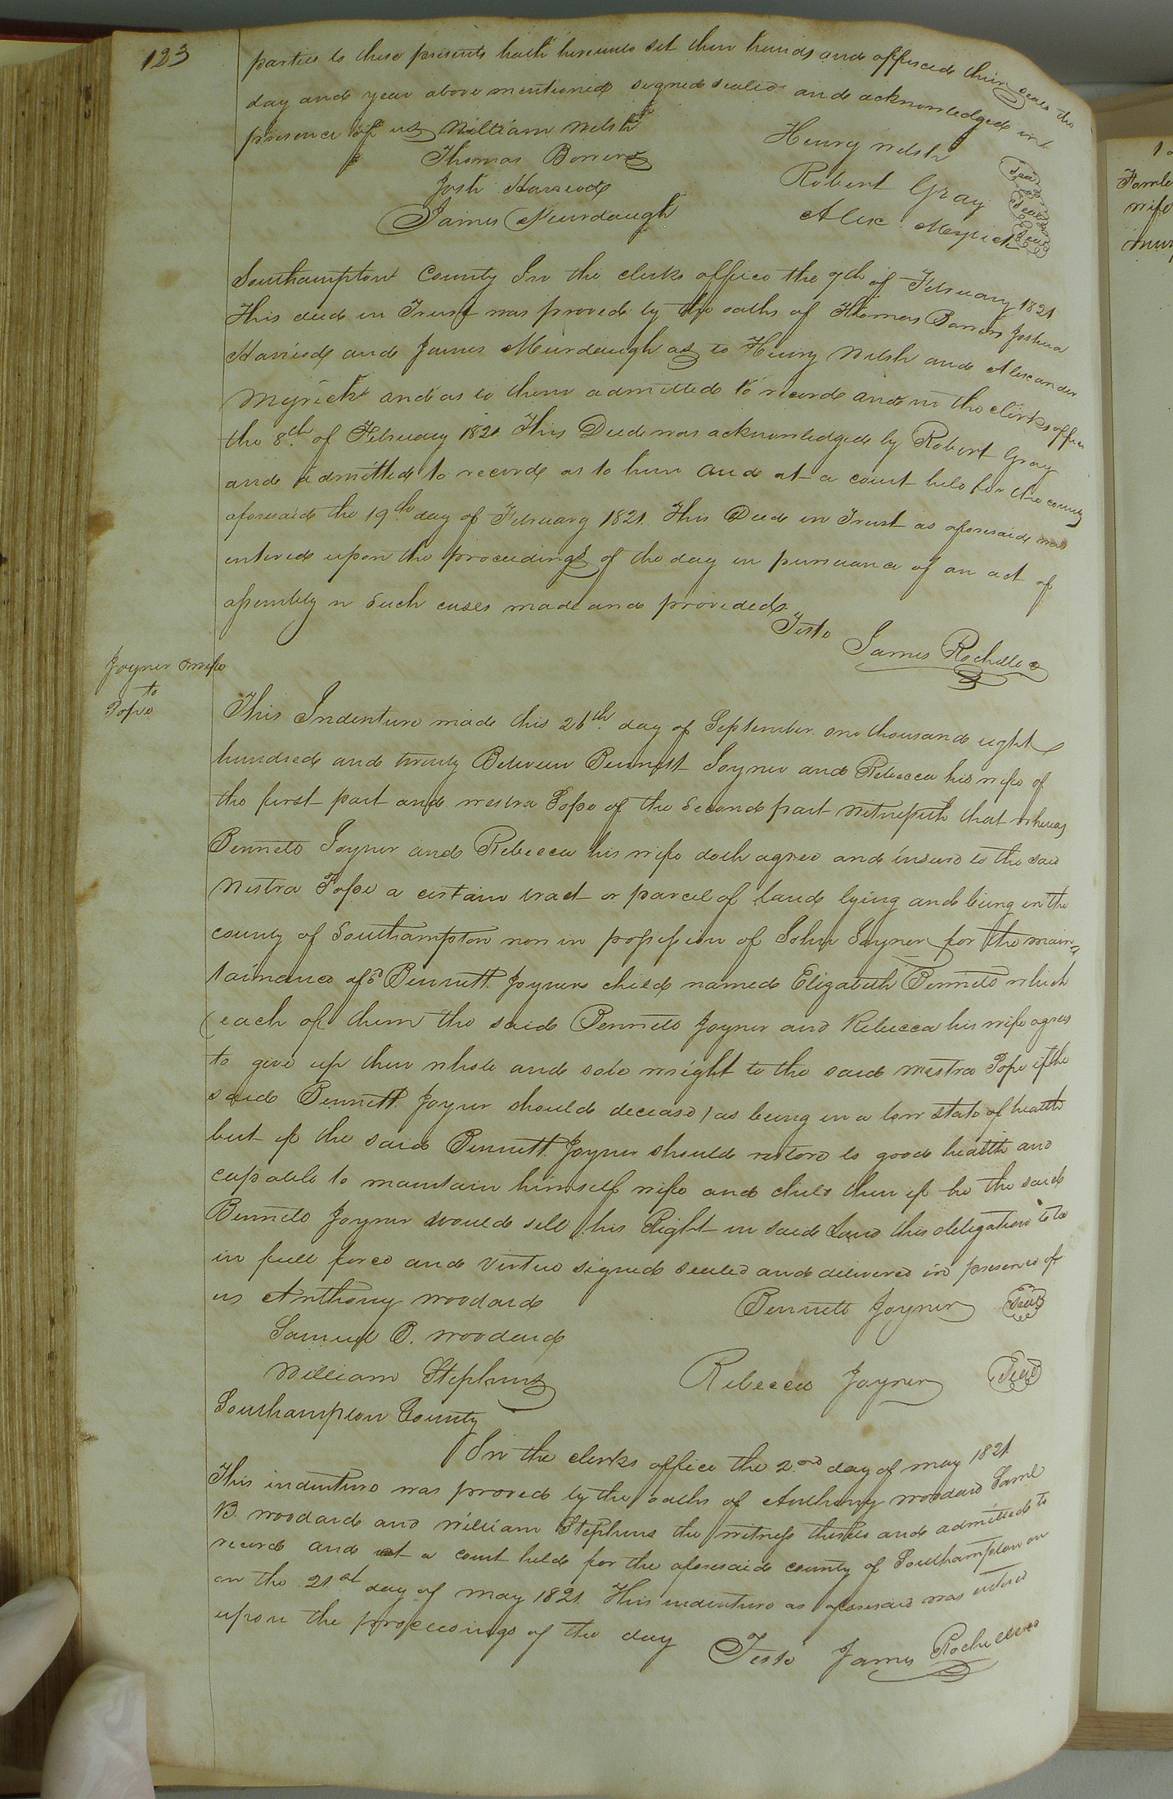 123
parties to these presents hath hereunto set their hands and affixed their seals the
day and year above mentioned signed sealed and acknowledged in
presence of us William Welsh
Henry Welsh Seal
Thomas Barrow
Robert Gray Seal
Josh Harwode
Alex Myrick Seal
James Murdaugh
Southampton County In the clerks office the 7th of February 1821
This deed in Trust was proved by the oaths of Thomas Barrow Joshua
and James Murdaugh as to Henry Welsh and Alexander
Myrick and as to them admitted to record and in the clerks office
the 8th of February 1821 This Deed was acknowledged by Robert Gray
and admitted to record as to him and at a court held for the county
aforesaid the 19th day of February 1821. This Deed in Trust as aforesaid was
entered upon the proceedings of the day in pursuance of an act of
assembly in Such cases made and provided
Teste James Rochelle
Joyner & wife
to
Pope
This Indenture made this 26th day of September one thousand eight
hundred and twenty Between Bennett Joyner and Rebecca his wife of
the first part and Pope of the Second part Witnesseth that whereas
Bennett Joyner and Rebecca his wife doth agree and insure to the said
Pope a certain tract or parcel of land lying and being in the
county of Southampton now in possession of John Joyner for the main
tainance of sd Bennett Joyners child named Elizabeth Bennett which
each of them the said Bennett Joyner and Rebecca his wife agrees
to give up their whole and sole wright to the said Pope if the
said Bennett Joyner should decease (as being in a low state of health
but if the said Bennett Joyner should restore to good health and
capable to maintain himself wife and child then if he the said
Bennett Joyner would sell his Right in said Land this obligation to be
in full force and virtue signed sealed and delivered in presence of
us Anthony Woodard
Bennett Joyner Seal
Samuel B. Woodard
William Stephens
Rebecca Joyner Seal
Southampton County
In the clerks office the 2nd day of may 1821
This indenture was proved by the oaths of Anthony Woodard Saml
B. Woodard and William Stephens the witness thereto and admitted to
record and at a court held for the aforesaid county of Southampton on
on the 21st day of may 1821 This indenture as aforesaid was entered
upon the proceedings of the day Teste James Rochelle